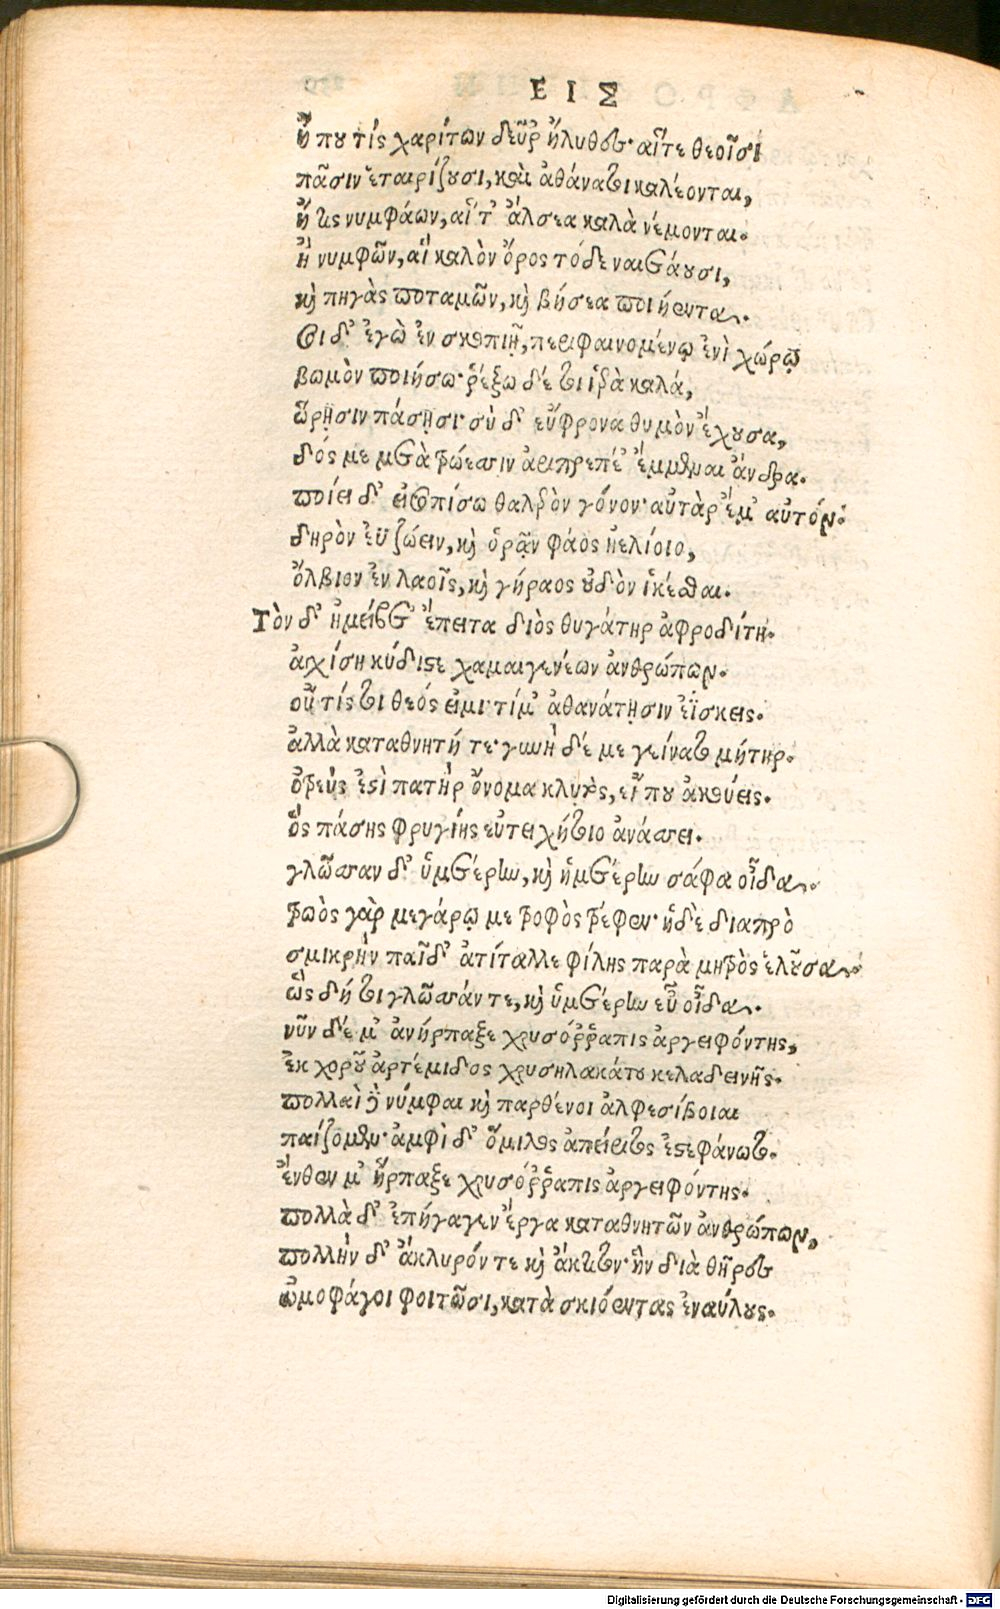 ΕΙΣ
ἤ που τίς χαρίτων δεῦρ' ἤλυθες· αἵτε θεοῖσί
πᾶσιν ἑταιρίζουσι, καὶ ἀθάνατοι καλέονται,
ἤ τις νυμφάων, αἵ τ' ἄλσεα καλὰ νέμονται.
ἢ νυμφῶν, αἳ καλὸν ὄρος τόδε ναιετάουσι,
καὶ πηγὰς ποταμῶν, καὶ βήσεα ποιήεντα.
σοὶ δ' ἐγὼ ἐν σκοπιῇ, περιφαινομένῳ ἐνὶ χώρῳ
βωμὸν ποιήσω· ῥέξω δέ τοι ἱερὰ καλά,
ὥρῃσιν πάσῃσι· σὺ δ' εὔφρονα θυμὸν ἔχουσα,
δός με μετὰ τρώεσσιν ἀριπρεπέ' ἔμμεναι ἄνδρα.
ποίει δ' εἰσοπίσω θαλερὸν γόνον· αὐτὰρ ἔμ' αὐτόν·
δηρὸν ἐῢ ζώειν, καὶ ὁρᾷν φάος ἠελίοιο,
ὄλβιον ἐν λαοῖς, καὶ γήραος οὐδὸν ἱκέσθαι.
Τὸν δ' ἠμείβετ' ἔπειτα διὸς θυγάτηρ ἀφροδίτη.
ἀγχίση κύδιστε χαμαιγενέων ἀνθρώπων.
οὔ τίς τοι θεός εἰμι· τί μ' ἀθανάτῃσιν ἐΐσκεις.
ἀλλὰ καταθνητή τε· γυνὴ δέ με γείνατο μήτηρ.
ὀτρεὺς ἐστὶ πατὴρ ὄνομα κλυτὸς, εἴ που ἀκούεις.
ὃς πάσης φρυγίης εὐτειχήτοιο ἀνάσσει.
γλῶσσαν δ' ὑμετέρην, καὶ ἡμετέρην σάφα οἶδα.
τρωὸς γὰρ μεγάρῳ με τροφὸς τρέφεν· ἡδὲ διαπρὸ
σμικρὴν παῖδ' ἀτίταλλε φίλης παρὰ μητρὸς ἑλοῦσα.
ὣς δή τοι γλῶσσάν τε, καὶ ὑμετέρην εὖ οἶδα.
νῦν δέ μ' ἀνήρπαξε χρυσόῤῥαπις ἀργειφόντης,
ἐκ χοροῦ ἀρτέμιδος χρυσηλακάτου κελαδεινῆς.
πολλαὶ δὲ νύμφαι καὶ παρθένοι ἀλφεσίβοιαι
παίζομεν· ἀμφὶ δ' ὅμιλος ἀπείριτος ἐστεφάνωτο.
ἔνθεν μ' ἥρπαξε χρυσόῤῥαπις ἀργειφόντης.
πολλὰ δ' ἐπήγαγεν ἔργα καταθνητῶν ἀνθρώπων,
πολλὴν δ' ἄκληρόν τε καὶ ἄκτιτον· ἣν διὰ θῆρες
ὠμοφάγοι φοιτῶσι, κατὰ σκιόεντας ἐναύλους.
Digitalisierung gefördert durch die Deutsche Forschungsgemeinschaft - DFG